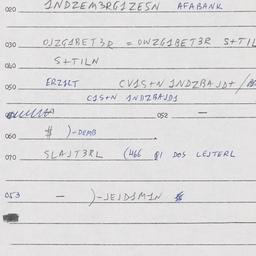 020 1NDZEM3RG1ZESN AFABANK
030 OJZG1BET3D = OWZG1BET3R S+TIL
040 S+TILN
050 ERZ1LT CV1S+N 1NDZBAJD+/
C1S+N 1NDZBAJD1
052 —
060 # )-DEMB
070 SLAJT3RL (466 §1 DOS LEJTERL
053 — )-JEJD1M1N